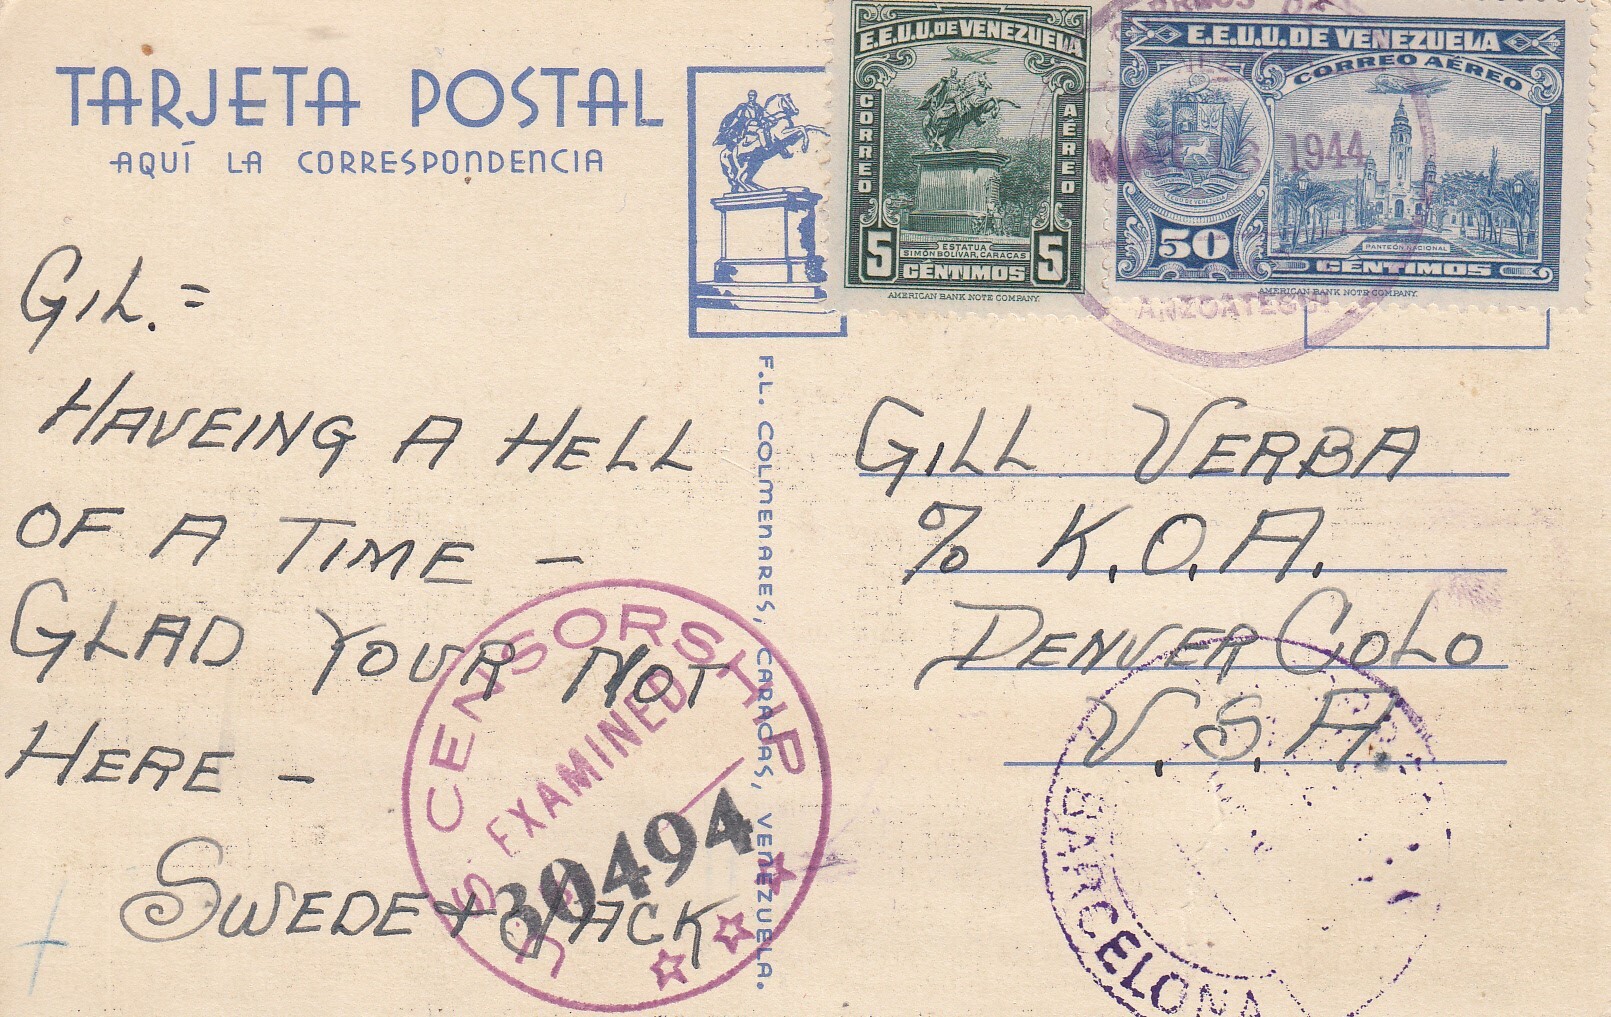 TARJETA POSTAL
AQUÍ LA CORRESPONDENCIA
E.E.U.U. DE VENEZUELA
CORREO
AÉREO
ESTATUA
SIMÓN BOLÍVAR, CARACAS
5 CÉNTIMOS 5
AMERICAN BANK NOTE COMPANY.
E.E.U.U. DE VENEZUELA
CORREO AÉREO
PANTEÓN NACIONAL
50
CÉNTIMOS
AMERICAN BANK NOTE COMPANY.
CORREOS DE
1944
ANZOATEGUI
GIL. =
HAVEING A HELL
OF A TIME –
GLAD YOUR NOT
HERE –
SWEDE + JACK
F. L. COLMENARES, CARACAS, VENEZUELA.
GILL VERBA
% K.O.A.
DENVER COLO
U.S.A.
U S CENSORSHIP
EXAMINED
30494
BARCELONA